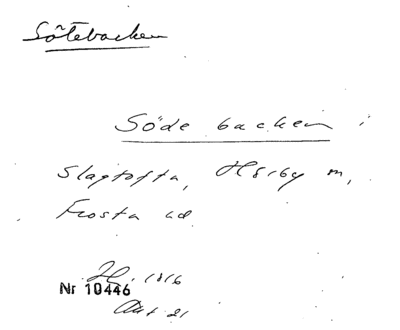 Sötebacken
Söde backen i
Slagtofta, Hörby m,
Frosta hd
H. 1816
Nr 10446
Akt 21